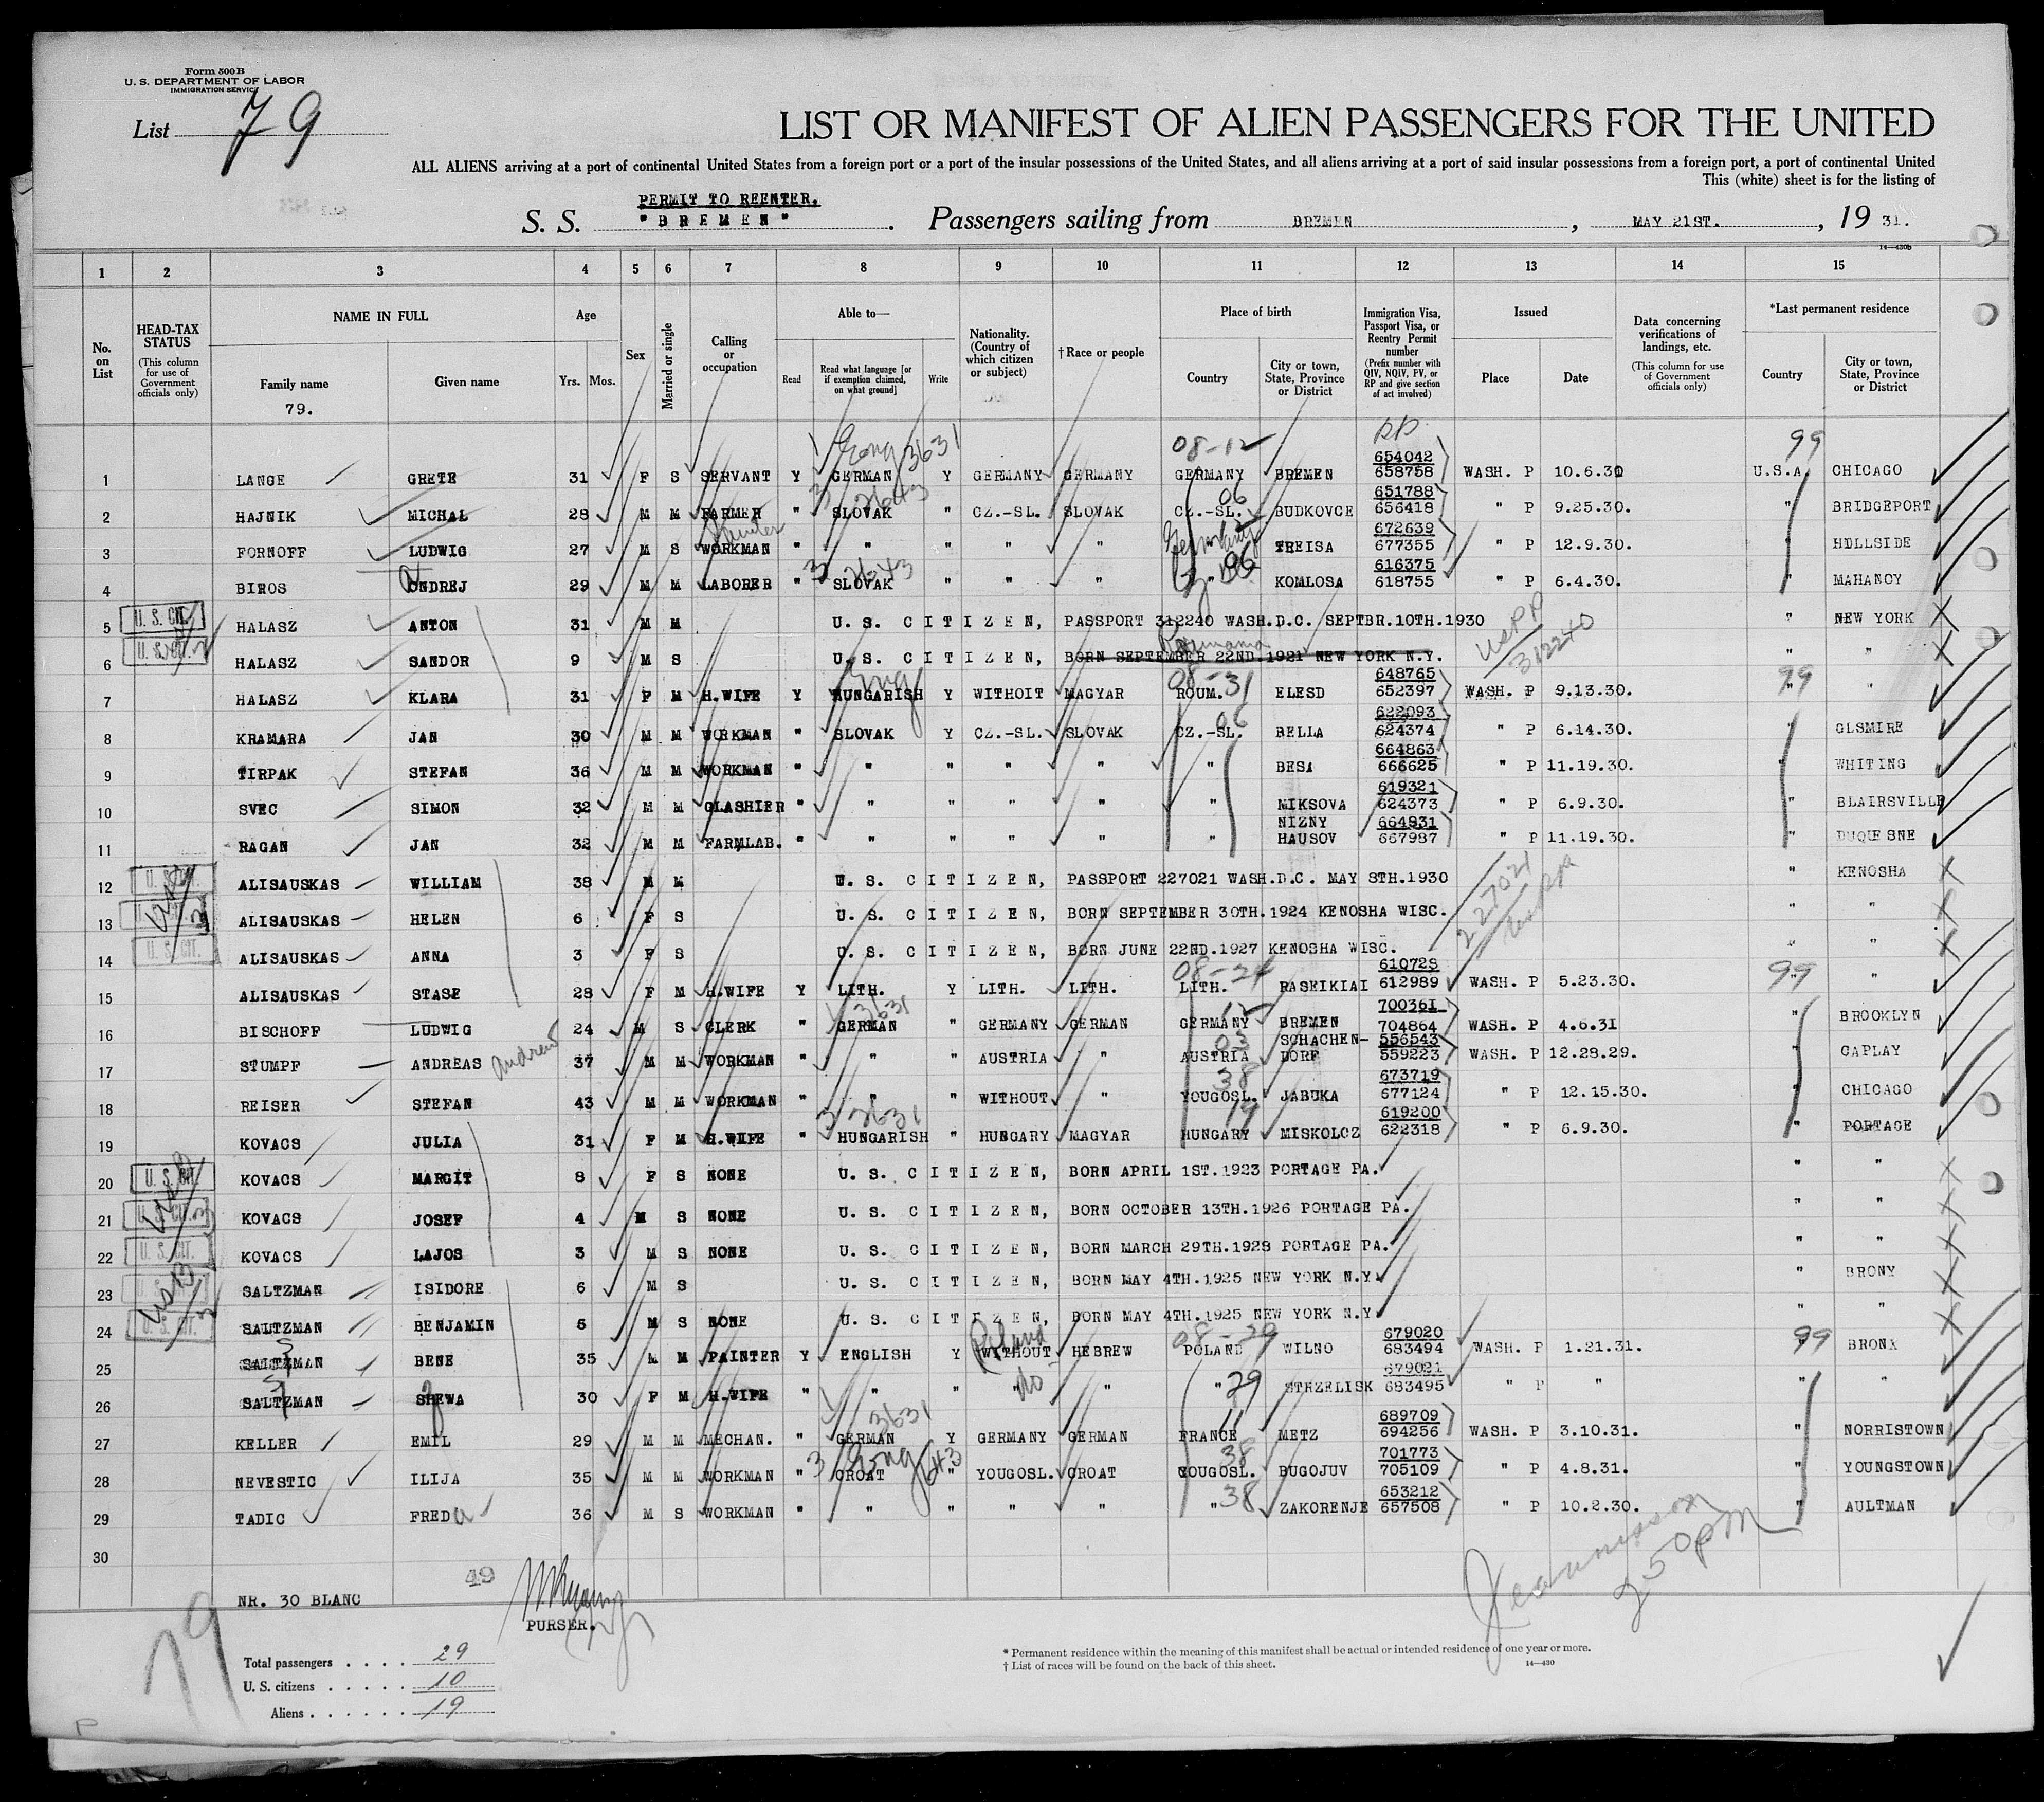 Form 500 B
U. S. DEPARTMENT OF LABOR
IMMIGRATION SERVICE
List 79
LIST OR MANIFEST OF ALIEN PASSENGERS FOR THE UNITED
ALL ALIENS arriving at a port of continental United States from a foreign port or a port of the insular possessions of the United States, and all aliens arriving at a port of said insular possessions from a foreign port, a port of continental United
This (white) sheet is for the listing of
PERMIT TO REENTER.
S. S. "BREMEN". Passengers sailing from BREMEN, MAY 21ST., 19 31.
14—430b
1 2 3 4 5 6 7 8 9 10 11 12 13 14 15
No. on List
HEAD-TAX STATUS (This column for use of Government officials only)
NAME IN FULL
Family name
79.
Given name
Age
Yrs. Mos.
Sex
Married or single
Calling or occupation
Able to—
Read
Read what language [or if exemption claimed, on what ground]
Write
Nationality. (Country of which citizen or subject)
†Race or people
Place of birth
Country
City or town, State, Province or District
Immigration Visa, Passport Visa, or Reentry Permit number (Prefix number with QIV, NQIV, PV, or RP and give section of act involved)
Issued
Place
Date
Data concerning verifications of landings, etc. (This column for use of Government officials only)
*Last permanent residence
Country
City or town, State, Province or District
Eng 3631 08-12 RP 99
654042
1 LANGE GRETE 31 F S SERVANT Y GERMAN Y GERMANY GERMANY GERMANY BREMEN 658758 WASH. P 10.6.30 U.S.A. CHICAGO
3 2643 06 651788
2 HAJNIK MICHAL 28 M M FARMER " SLOVAK " CZ.-SL. SLOVAK CZ.-SL. BUDKOVCE 656418 " P 9.25.30. " BRIDGEPORT
Germany 12 672639
3 FORNOFF LUDWIG 27 M S WORKMAN " " " " " " TREISA 677355 " P 12.9.30. " HILLSIDE
3 2643 06 616375
4 BIROS ONDREJ 29 M M LABORER " SLOVAK " " " " KOMLOSA 618755 " P 6.4.30. " MAHANOY
U. S. CIT.
5 HALASZ ANTON 31 M M U. S. CITIZEN, PASSPORT 312240 WASH.D.C. SEPTBR.10TH.1930 " NEW YORK
U. S. CIT. Roumania USPP 312240
6 HALASZ SANDOR 9 M S U. S. CITIZEN, BORN SEPTEMBER 22ND.1921 NEW YORK N.Y. " "
Eng 08-31 648765 99
7 HALASZ KLARA 31 F M H.WIFE Y HUNGARISH Y WITHOIT MAGYAR ROUM. ELESD 652397 WASH. P 9.13.30. " "
06 622093
8 KRAMARA JAN 30 M M WORKMAN " SLOVAK Y CZ.-SL. SLOVAK CZ.-SL. BELLA 624374 " P 6.14.30. " GLSMIRE
664863
9 TIRPAK STEFAN 36 M M WORKMAN " " " " " " BESA 666625 " P 11.19.30. " WHITING
619321
10 SVEC SIMON 32 M M GLASHIER " " " " " " MIKSOVA 624373 " P 6.9.30. " BLAIRSVILLE
NIZNY 664831
11 RAGAN JAN 32 M M FARMLAB. " " " " " " HAUSOV 667987 " P 11.19.30. " DUQUESNE
12 ALISAUSKAS WILLIAM 38 M M U. S. CITIZEN, PASSPORT 227021 WASH.D.C. MAY 8TH.1930 " KENOSHA
227021
13 ALISAUSKAS HELEN 6 F S U. S. CITIZEN, BORN SEPTEMBER 30TH.1924 KENOSHA WISC. " "
U. S. CIT.
14 ALISAUSKAS ANNA 3 F S U. S. CITIZEN, BORN JUNE 22ND.1927 KENOSHA WISC. " "
08-24 610728 99
15 ALISAUSKAS STASE 28 F M H.WIFE Y LITH. Y LITH. LITH. LITH. RASEIKIAI 612989 WASH. P 5.23.30. " "
3631 12 700361
16 BISCHOFF LUDWIG 24 M S CLERK " GERMAN " GERMANY GERMAN GERMANY BREMEN 704864 WASH. P 4.6.31 " BROOKLYN
Andrew 03 SCHACHEN- 556543
17 STUMPF ANDREAS 37 M M WORKMAN " " " AUSTRIA " AUSTRIA DORF 559223 WASH. P 12.28.29. " CAPLAY
38 673719
18 REISER STEFAN 43 M M WORKMAN " " " WITHOUT " YOUGOSL. JABUKA 677124 " P 12.15.30. " CHICAGO
3 2631 19 619200
19 KOVACS JULIA 31 F M H.WIFE " HUNGARISH " HUNGARY MAGYAR HUNGARY MISKOLCZ 622318 " P 6.9.30. " PORTAGE
20 KOVACS MARGIT 8 F S NONE U. S. CITIZEN, BORN APRIL 1ST.1923 PORTAGE PA. " "
21 KOVACS JOSEF 4 M S NONE U. S. CITIZEN, BORN OCTOBER 13TH.1926 PORTAGE PA. " "
U. S. CIT.
22 KOVACS LAJOS 3 M S NONE U. S. CITIZEN, BORN MARCH 29TH.1928 PORTAGE PA. " "
23 SALTZMAN ISIDORE 6 M S U. S. CITIZEN, BORN MAY 4TH.1925 NEW YORK N.Y. " BRONX
U. S. CIT.
24 SALTZMAN BENJAMIN 6 M S NONE U. S. CITIZEN, BORN MAY 4TH.1925 NEW YORK N.Y. " "
Poland 08-29 679020 99
25 SALTZMAN BENE 35 M M PAINTER Y ENGLISH Y WITHOUT HEBREW POLAND WILNO 683494 WASH. P 1.21.31. " BRONX
do 29 679021
26 SALTZMAN SHEWA 30 F M H.WIFE " " " " " " STRZELISK 683495 " P " " "
3631 11 689709
27 KELLER EMIL 29 M M MECHAN. " GERMAN Y GERMANY GERMAN FRANCE METZ 694256 WASH. P 3.10.31. " NORRISTOWN
3 Eng 643 38 701773
28 NEVESTIC ILIJA 35 M M WORKMAN " CROAT " YOUGOSL. CROAT YOUGOSL. BUGOJUV 705109 " P 4.8.31. " YOUNGSTOWN
38 653212
29 TADIC FREDa 36 M S WORKMAN " " " " " " ZAKORENJE 657508 " P 10.2.30. " AULTMAN
30
49
NR. 30 BLANC
PURSER.
250pm
79
Total passengers . . . . 29
U. S. citizens . . . . . 10
Aliens . . . . . . 19
* Permanent residence within the meaning of this manifest shall be actual or intended residence of one year or more.
† List of races will be found on the back of this sheet.
14—430
P